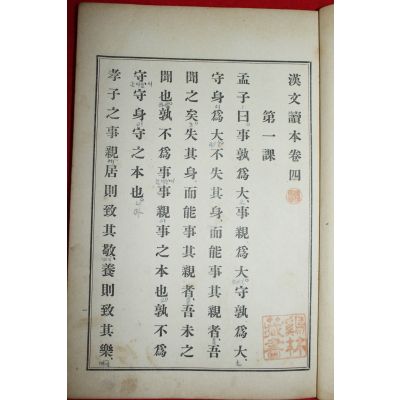 漢文讀本卷四
第一課
孟子曰、事孰爲大、事親爲大、守孰爲大、
守身爲大、不失其身而能事其親者、吾
聞之矣、失其身而能事其親者、吾未之
聞也、孰不爲事、事親事之本也、孰不爲
守、守身守之本也、
孝子之事親、居則致其敬、養則致其樂、